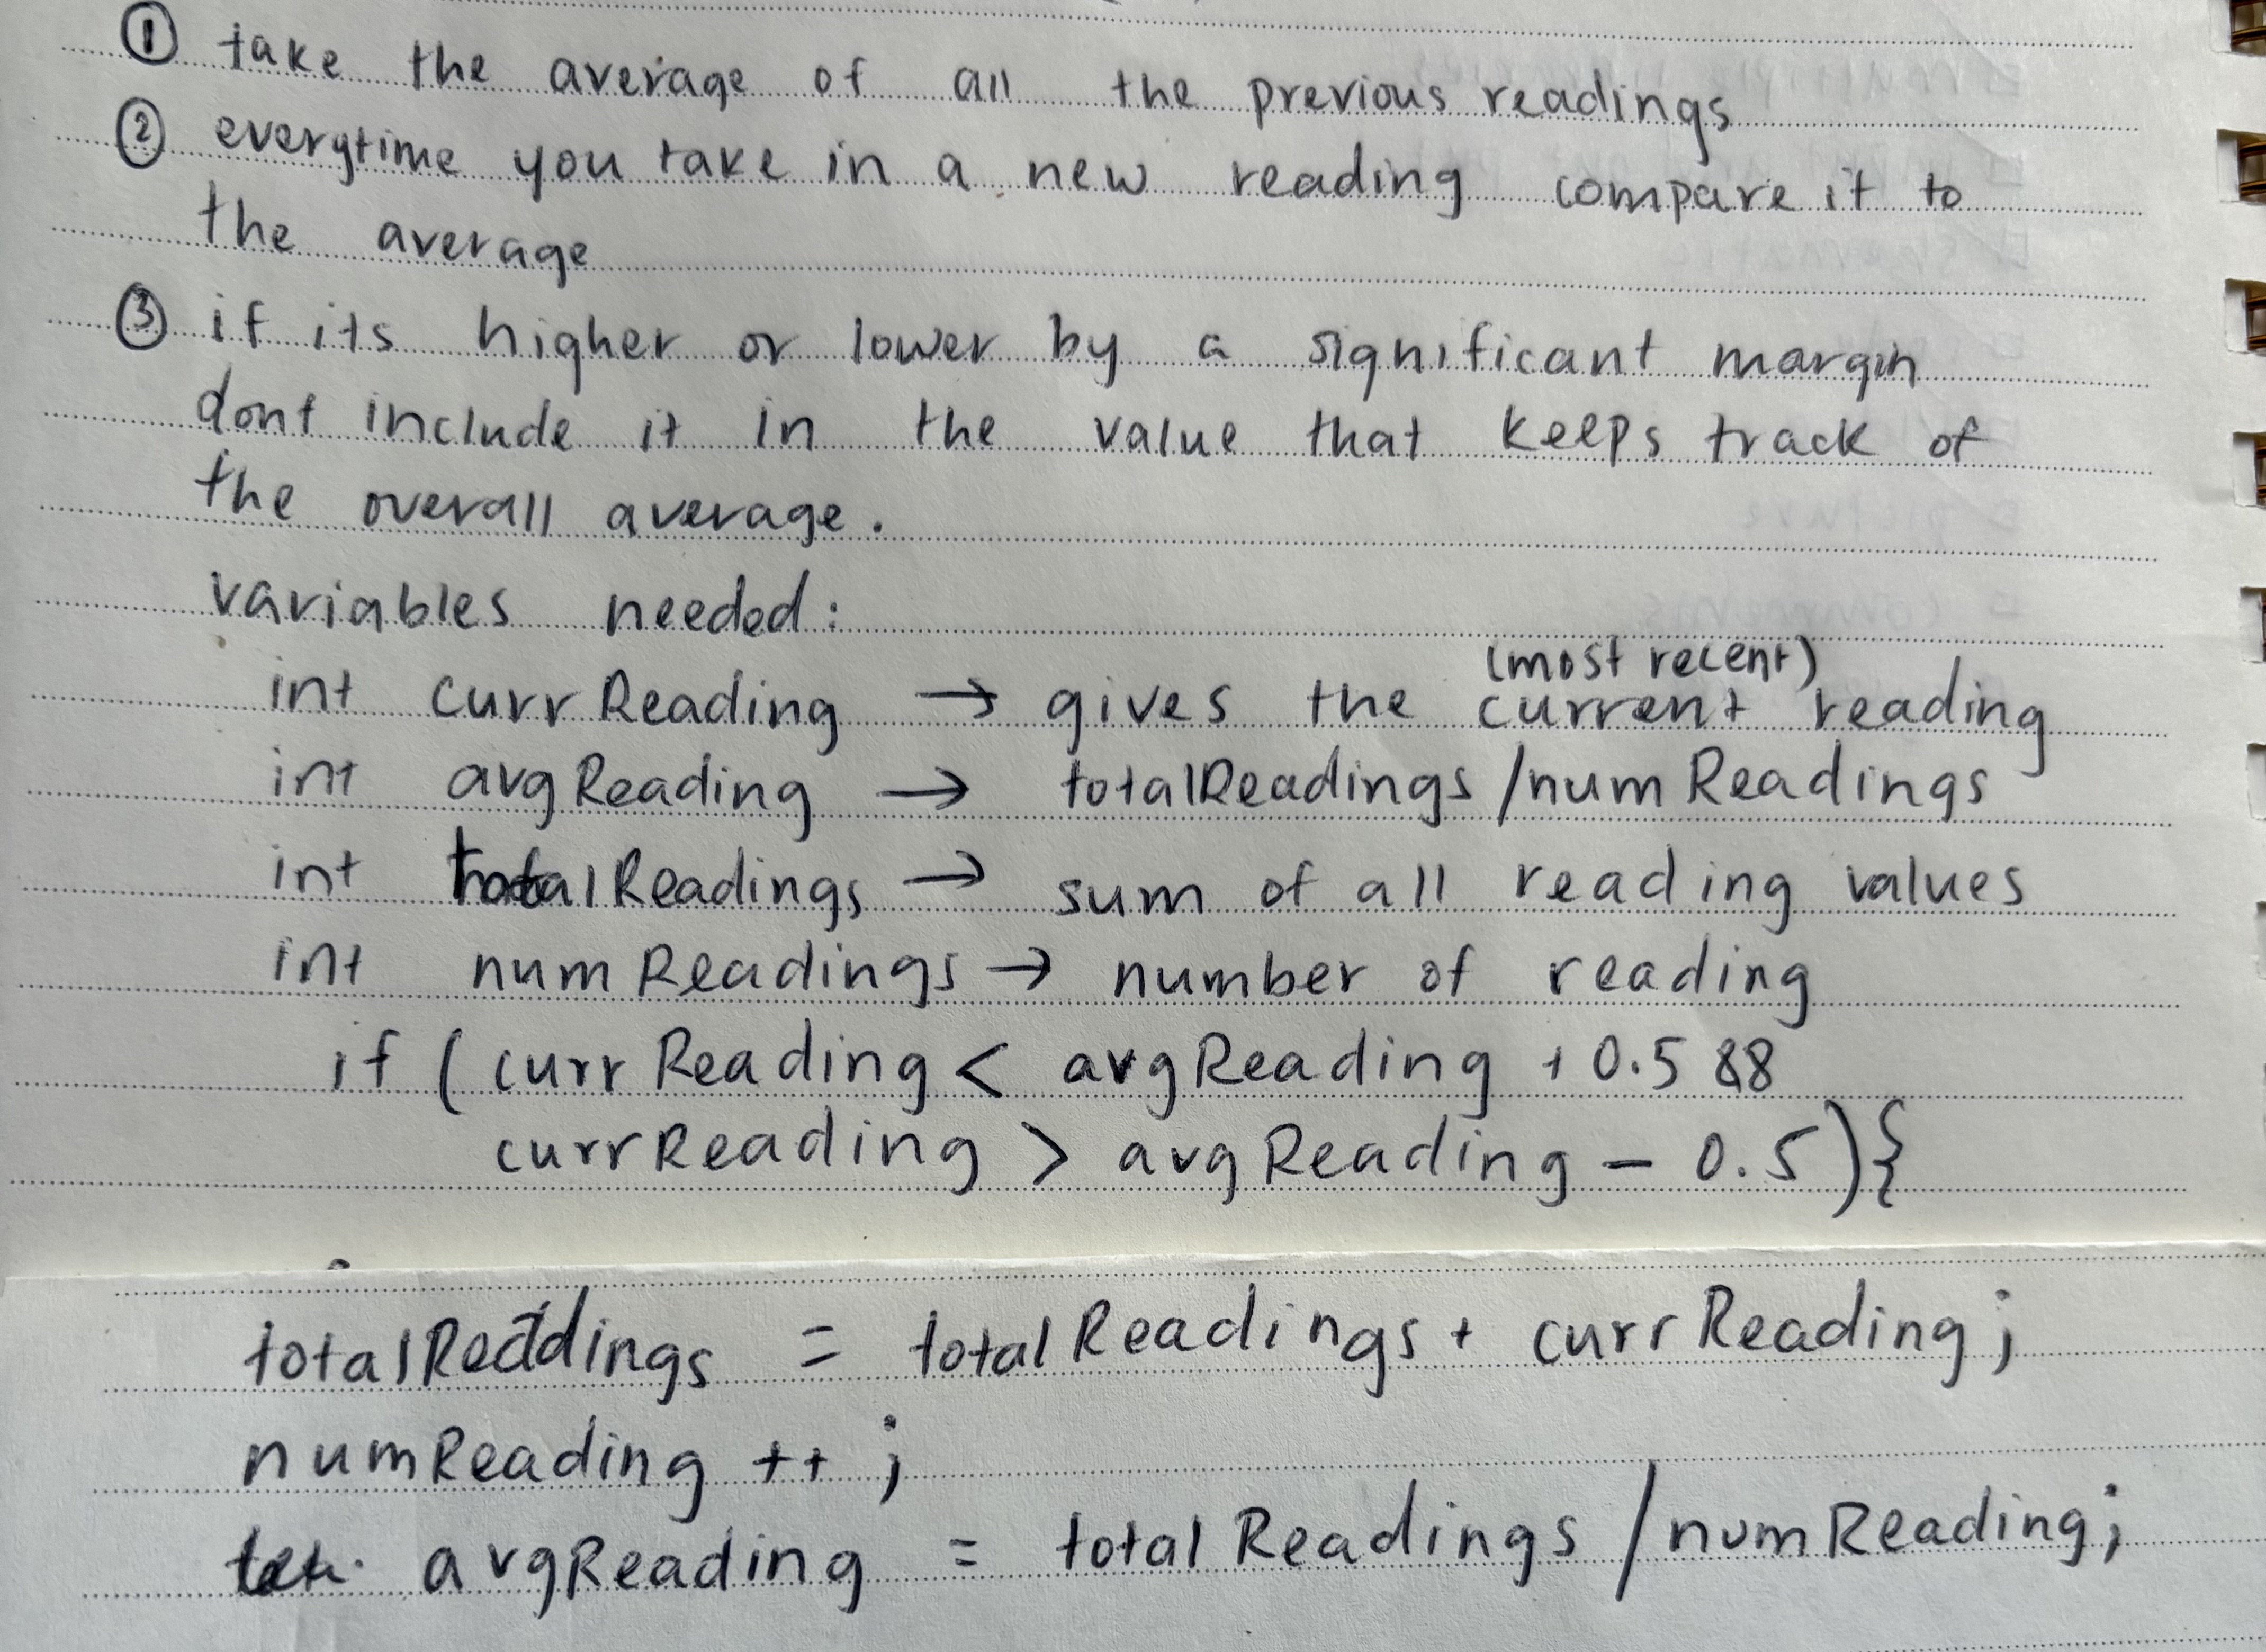 ① take the average of all the previous readings
② everytime you take in a new reading compare it to
the average
③ if its higher or lower by a significant margin
dont include it in the value that keeps track of
the overall average.
variables needed:
(most recent)
int currReading → gives the current reading
int avgReading → totalReadings/numReadings
int totalReadings → sum of all reading values
int numReadings → number of reading
if (currReading < avgReading + 0.5 &&
currReading > avgReading - 0.5){
totalReadings = totalReadings + currReading;
numReading ++;
avgReading = totalReadings /numReading;